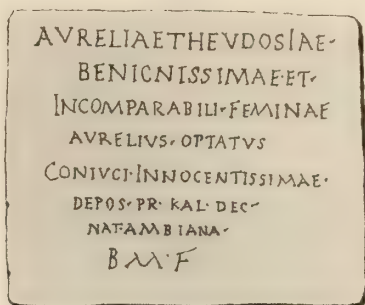 AVRELIAETHEVDOSIAE·
BENICNISSIMAE·ET·
INCOMPARABILI·FEMINAE
AVRELIVS·OPTATVS
CONIVCI·INNOCENTISSIMAE·
DEPOS·PR·KAL·DEC·
NAT·AMBIANA·
B M·F